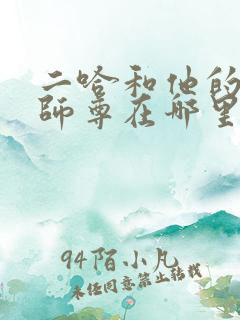 二哈和他的
師尊在哪里
94陌小凡
未经同意禁止转载